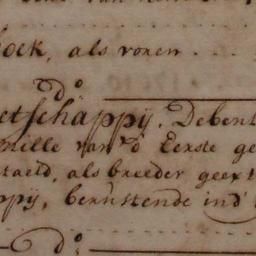 oek, als voren . . .
do
etschappij. Debent
mille van d' Eerste ge
taeld, als breeder geext
ppij, berustende ind'
do